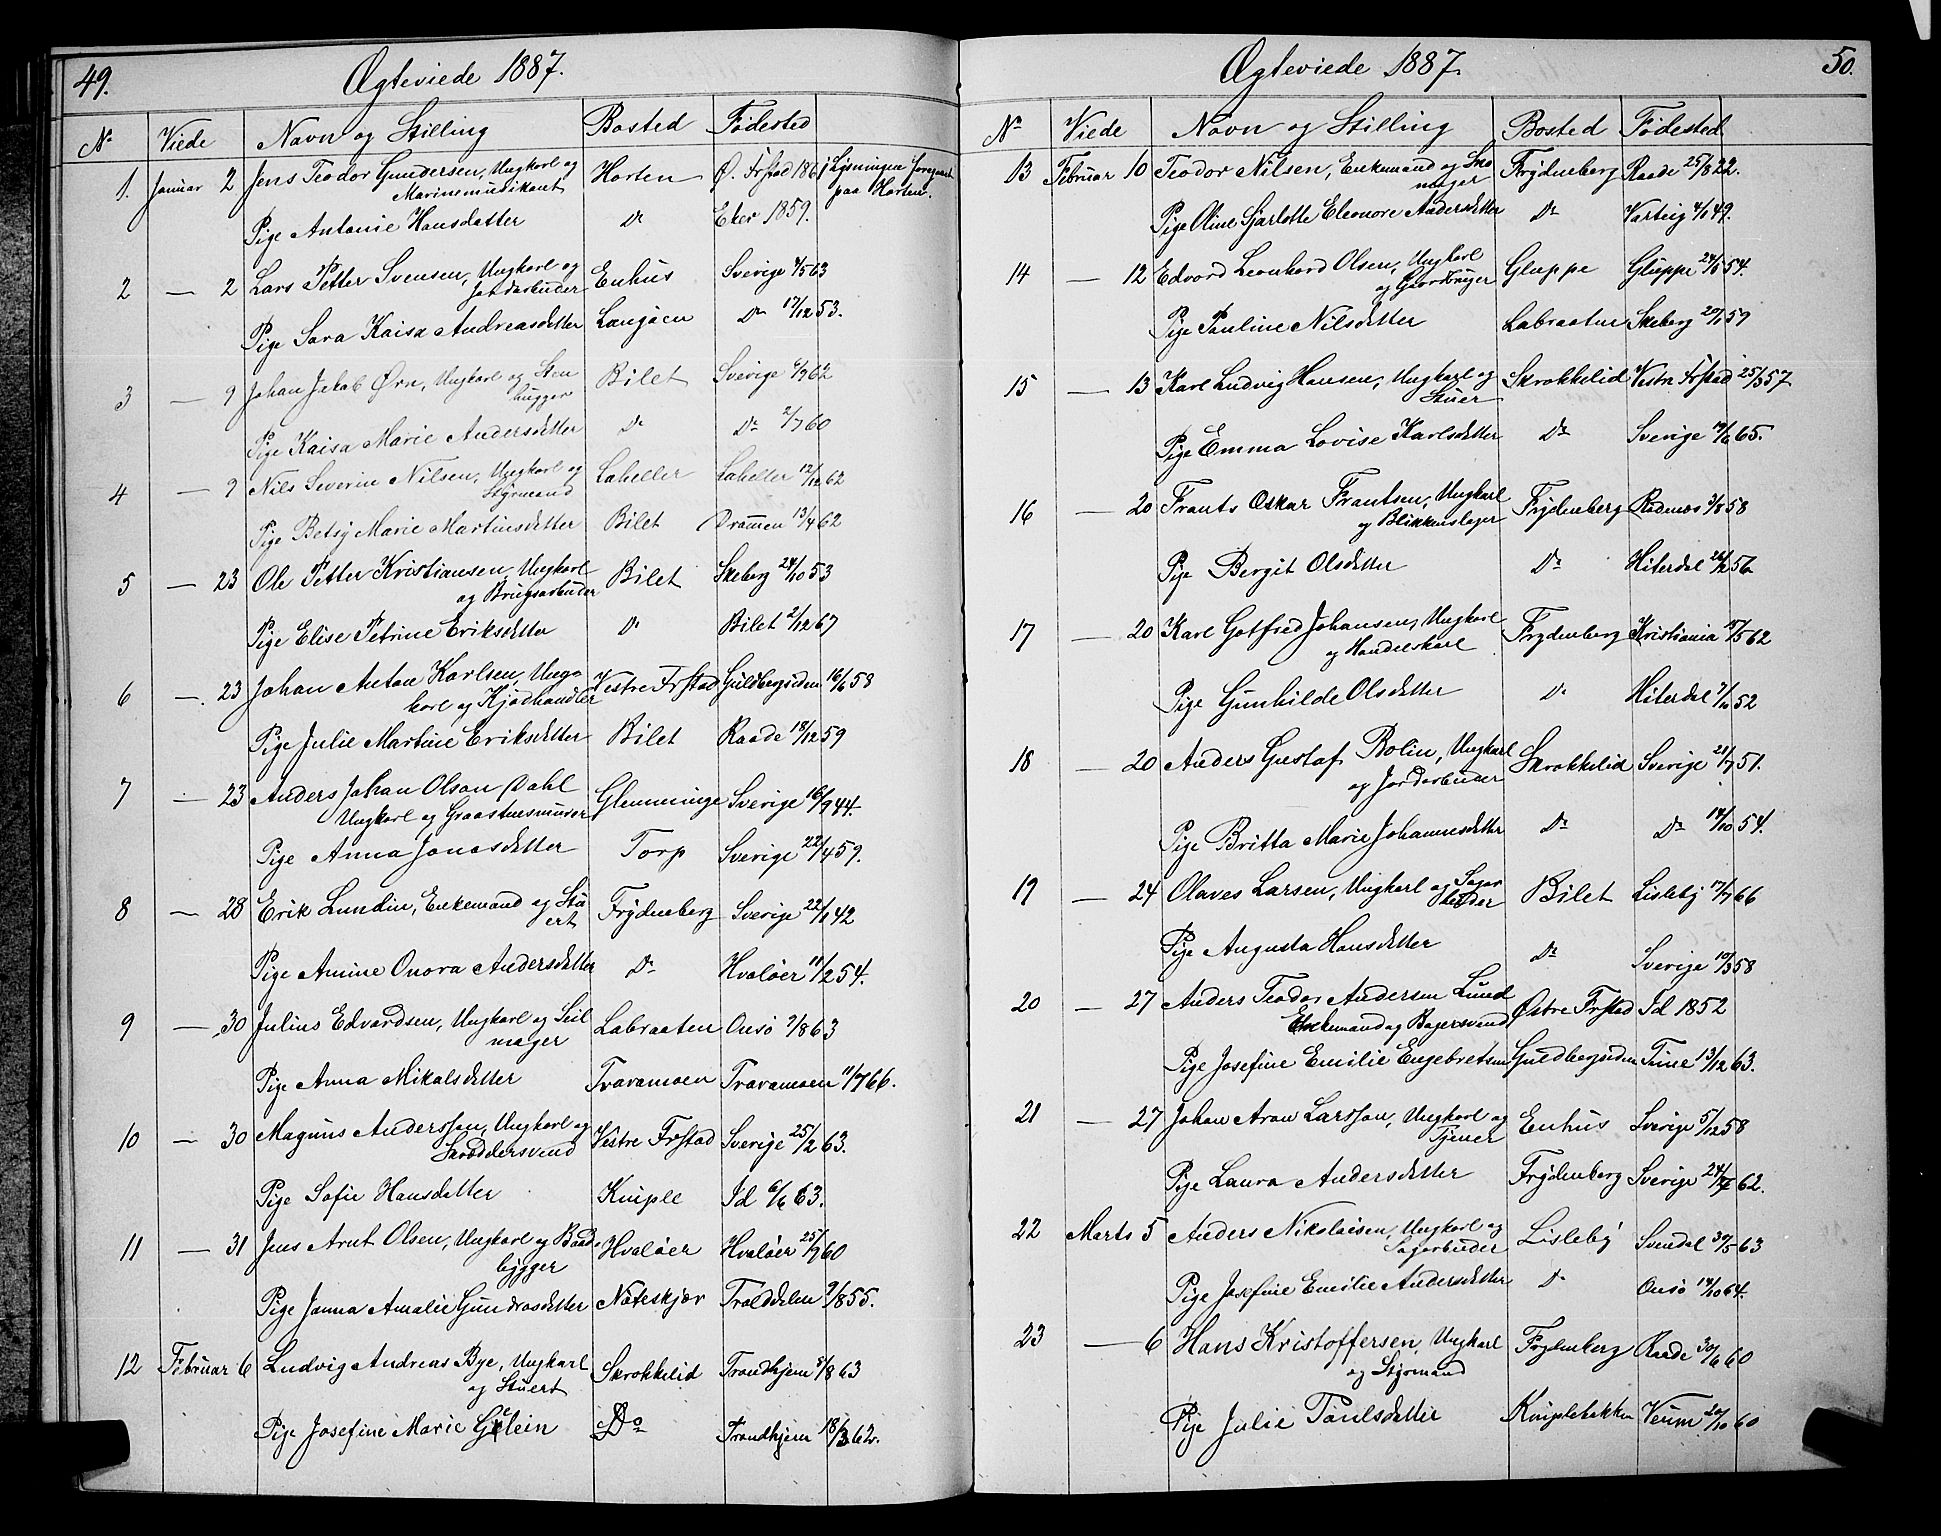 49.
Ægteviede 1887.
No Viede Navn og Stilling Bosted Fødested
1. Januar 2 Jens Teodor Gundersen, Ungkarl og Horten Ø. Frstad 1861 Lysningen foregaaet
Marinemusikant paa Horten.
Pige Antonie Hansdatter Do Eker 1859.
2 — 2 Lars Petter Svensen, Ungkarl og Enhus Sverige 4/5 63
Jordarbeider
Pige Sara Kaisa Andreasdatter Langøen Do 17/12 53.
3 — 9 Johan Jakob Ørn, Ungkarl og Sten Bilet Sverige 6/9 62
hugger
Pige Kaisa Marie Andersdatter Do Do 2/7 60
4 — 9 Nils Severin Nilsen, Ungkarl og Laheller Laheller 12/12 62
Styrmand
Pige Betsy Marie Martinsdatter Bilet Drammen 13/4 62
5 — 23 Ole Petter Kristiansen, Ungkarl Bilet Skeberg 24/10 53
og Brugsarbeider
Pige Elise Petrine Eriksdatter Do Bilet 2/12 67
6 — 23 Johan Anton Karlsen, Ung- Vestre Frstad Guldbergsiden 16/6 58
karl og Kjødhandler
Pige Julie Martine Eriksdatter Bilet Raade 18/12 59
7 — 23 Anders Johan Olson Dahl Glemminge Sverige 16/9 44.
Ungkarl og Graastensmurer
Pige Anna Jonasdatter Torp Sverige 22/4 59.
8 — 28 Erik Lundin, Enkemand og Stu Frydenberg Sverige 22/1 42
ert
Pige Amine Onora Andersdatter Do Hvaløer 11/2 54.
9 — 30 Julius Edvardsen, Ungkarl og Seil Labraaten Onsø 7/8 63
mager
Pige Anna Mikalsdatter Travamoen Travamoen 11/7 66.
10 — 30 Magnus Anderssen, Ungkarl og Vestre Frstad Sverige 25/2 63.
Skræddersvend
Pige Sofie Hansdatter Kniple Id 6/6 63.
11 — 31 Jens Arnt Olsen, Ungkarl og Baad- Hvaløer Hvaløer 25/7 60
bygger
Pige Janna Amalie Gundrosdatter Noteskjær Trolddalen 9/8 55.
12 Februar 6 Ludvig Andreas Bye, Ungkarl Skrokkelid Trondhjem 5/8 63
og Stuert
Pige Josefine Marie Gulein Do Trondhjem 18/3 62.
50.
Ægteviede 1887.
No Viede Navn og Stilling Bosted Fødested
13 Februar 10 Teodor Nilsen, Enkemand og Sko Frydenberg Raade 25/8 22.
mager
Pige Oline Sjarlotte Eleonore Andersdatter Do Varteig 4/1 49.
14 — 12 Edvard Leonhard Olsen, Ungkarl Gluppe Gluppe 24/6 54.
og Gaardbruger
Pige Pauline Nilsdatter Labraaten Skeberg 29/1 59
15 — 13 Karl Ludvig Hansen, Ungkarl og Skrokkelid Vestre Frstad 25/3 57
Stuer
Pige Emma Lovise Karlsdatter Do Sverige 19/6 65.
16 — 20 Frants Oskar Frantsen, Ungkarl Frydenberg Rødenæs 3/8 58
og Blikkenslager
Pige Bergit Olsdatter Do Hiterdal 56
17 — 20 Karl Gotfred Johansen, Ungkarl Frydenberg Kristiania 62
og Handelskarl
Pige Gunhilde Olsdatter Do Hiterdal 52
18 — 20 Anders Gustaf Bolin, Ungkarl Skrokkelid Sverige 21/7 51.
og Jordarbeider
Pige Britta Marie Johannesdatter Do Do 14/10 54.
19 — 24 Olaves Larsen, Ungkarl og Sagar Bilet Lisleby 17/7 66
beider
Pige Augusta Hansdatter Do Sverige 10/3 58
20 — 27 Anders Teodor Andersen Lund Østre Frstad Id 1852
Enkemand og Bagersvend
Pige Josefine Emilie Engebretsen Guldbergsiden Tune 13/12 63.
21 — 27 Johan Aron Larsson, Ungkarl og Enhus Sverige 5/12 58
Tjener
Pige Laura Andersdatter Frydenberg Sverige 62.
22 Marts 5 Anders Nikolaisen, Ungkarl og Lisleby Svendal 30/5 63
Sagarbeider
Pige Josefine Emilie Andersdatter Do Onsø 14/10 64.
23 — 6 Hans Kristoffersen, Ungkarl Frydenberg Raade 30/6 60
og Styrmand
Pige Julie Paulsdatter Kniplebakken Verum 20/10 60